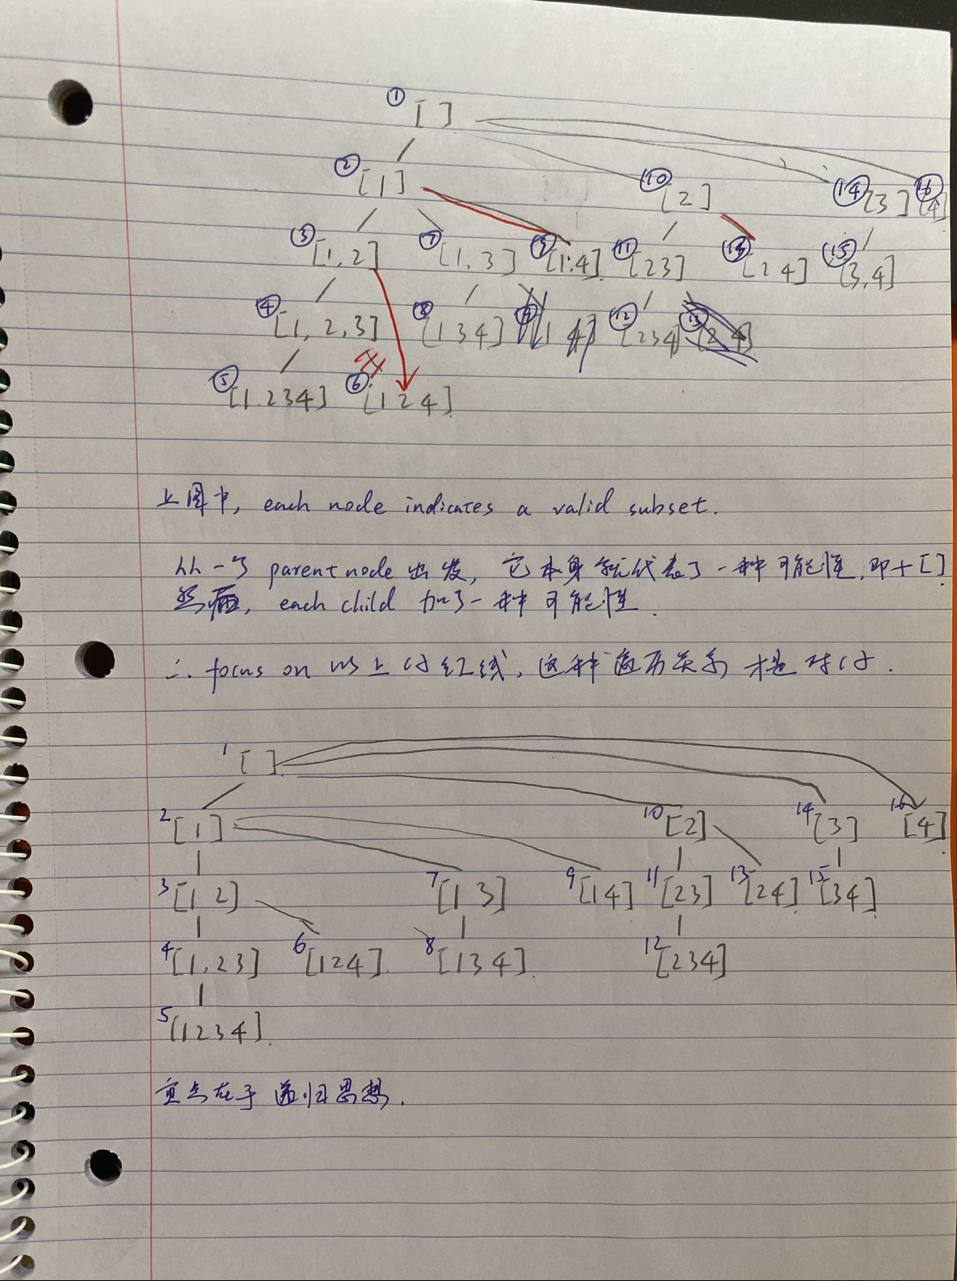 ① [ ]
② [1] ⑩ [2] ⑭ [3] ⑯ [4]
③ [1,2] ⑦ [1,3] ⑨ [1,4] ⑪ [23] [24] ⑮ [3,4]
④ [1,2,3] ⑧ [134] ⑫ [234]
⑤ [1,234] ⑥ [124]
上图中, each node indicates a valid subset.
从一个 parent node 出发, 它本身就代表了一种可能性, 即+[]
然后, each child 加了一种可能性.
∴ focus on 以上的红线, 这种递归关系才是对的.
1 [ ]
2 [1] 10 [2] 14 [3] 16 [4]
3 [12] 7 [13] 9 [14] 11 [23] 13 [24] 15 [34]
4 [1,23] 6 [124] 8 [134] 12 [234]
5 [1234]
重点在于递归思想.